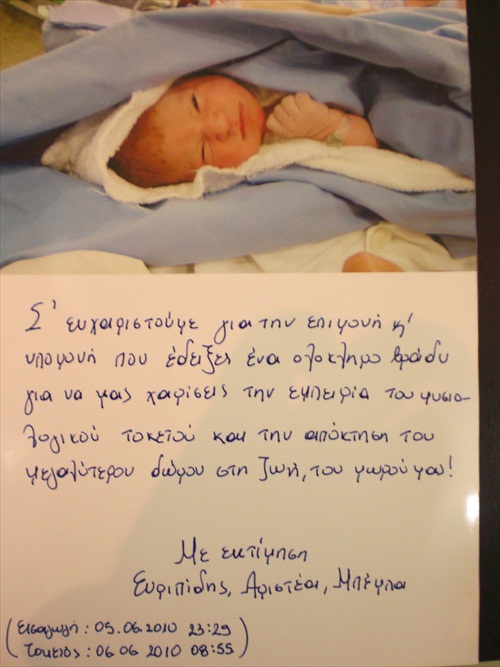 Σ' ευχαριστούμε για την επιμονή κ'
υπομονή που έδειξες ένα ολόκληρο βράδυ
για να μας χαρίσεις την εμπειρία του φυσιο-
λογικού τοκετού και την απόκτηση του
μεγαλύτερου δώρου στη ζωή, του μωρού μου!
Με εκτίμηση
Ευριπίδης, Αριστέα, Μπέμπα
(Εισαγωγή : 05.06.2010 23:29
Τοκετός : 06.06 2010 08:55)